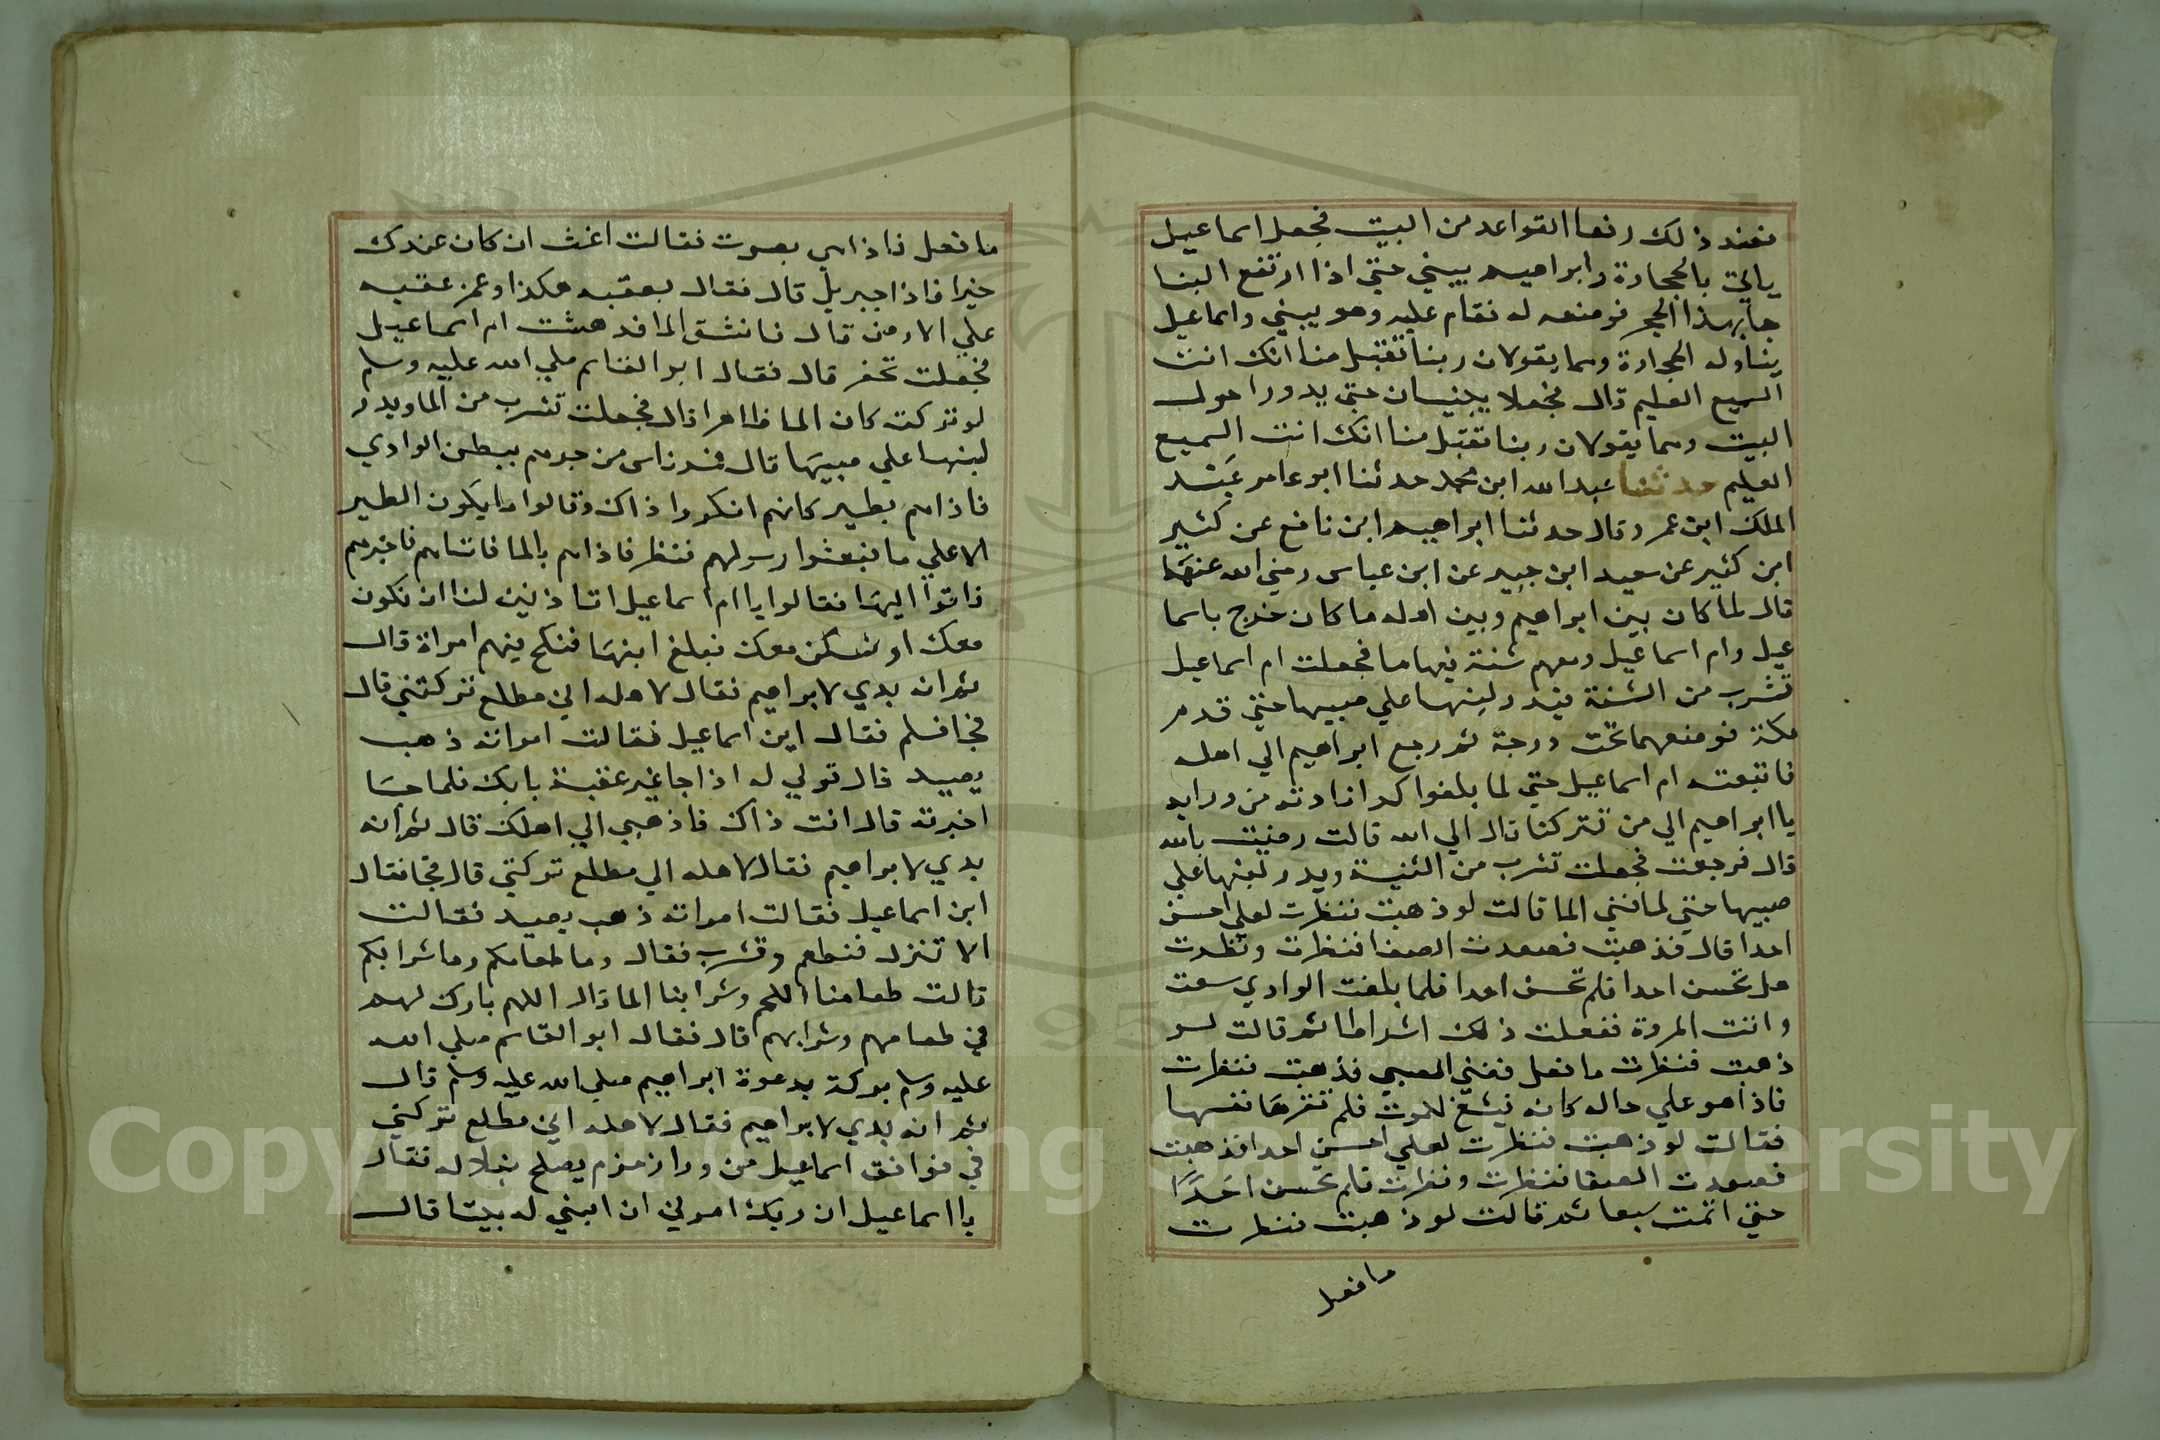 فعند ذلك رفعا القواعد من البيت فجعل اسماعيل
ياتي بالحجارة وابراهيم يبني حتي اذا ارتفع البنا
جا بهذا الحجر فوضعه له فقام عليه وهو يبني واسماعيل
يناوله الحجارة وهما يقولان ربنا تقبل منا انك انت
السميع العليم قال فجعلا يبنيان حتي يدورا حول
البيت وهما يقولان ربنا تقبل منا انك انت السميع
العليم حدثنا عبدالله ابن محمد حدثنا ابو عامر عبد
الملك ابن عمر وقال حدثنا ابراهيم ابن نافع عن كثير
ابن كثير عن سعيد ابن جبير عن ابن عباس رضي الله عنهما
قال لما كان بين ابراهيم وبين اهله ما كان خرج باسما
عيل وام اسماعيل ومعهم شنة فيها ما فجعلت ام اسماعيل
تشرب من الشنة فيدر لبنها علي صبيها حتي قدم
مكة فوضعهما تحت دوحة ثم رجع ابراهيم الي اهله
فاتبعته ام اسماعيل حتي لما بلغوا كدا نادته من ورايه
يا ابراهيم الي من تتركنا قال الي الله قالت رضيت بالله
قال فرجعت فجعلت تشرب من الشنة ويدر لبنها علي
صبيها حتي لما فني الما قالت لو ذهبت فنظرت لعلي احسن
احدا قال فذهبت فصعدت الصفا فنظرت ونظرت
هل تحسن احدا فلم تحسن احدا فلما بلغت الوادي سعت
واتت المروة ففعلت ذلك اشواطا ثم قالت لو
ذهبت فنظرت ما فعل فعني الصبي فذهبت فنظرت
فاذا هو علي حاله كانه ينشغ للموت فلم تقرها نفسها
فقالت لو ذهبت فنظرت لعلي احسن احدا فذهبت
فصعدت الصفا فنظرت ونظرت فلم تحسن احدا
حتي اتمت سبعا ثم قالت لو ذهبت فنظرت
ما فعل
ما فعل فاذا هي بصوت فقالت اغث ان كان عندك
خيرا فاذا جبريل قال فقال بعقبه هكذا وغمز عقبه
علي الارض قال فانشق الما فدهشت ام اسماعيل
فجعلت تحفر قال فقال ابو القاسم صلي الله عليه وسلم
لو تركته كان الما ظاهرا قال فجعلت تشرب من الما ويدر
لبنها علي صبيها قال فمر ناس من جرهم ببطن الوادي
فاذا هم بطير كانهم انكروا ذاك وقالوا ما يكون الطير
الا علي ما فبعثوا رسولهم فنظر فاذا هم بالما فاتاهم فاخبرهم
فاتوا اليها فقالوا يا ام اسماعيل اتاذنين لنا ان نكون
معك او نسكن معك فبلغ ابنها فنكح فيهم امراة قال
ثم انه بدي لابراهيم فقال لاهله اني مطلع تركتني قال
فجا فسلم فقال اين اسماعيل فقالت امراته ذهب
يصيد قال قولي له اذا جا غير عتبة بابك فلما جا
اخبرته قال انت ذاك فاذهبي الي اهلك قال ثم انه
بدي لابراهيم فقال لاهله اني مطلع تركتي قال فجا فقال
اين اسماعيل فقالت امراته ذهب يصيد فقالت
الا تنزل فتطعم وتشرب فقال وما طعامكم وما شرابكم
قالت طعامنا اللحم وشرابنا الما قال اللهم بارك لهم
في طعامهم وشرابهم قال فقال ابو القاسم صلي الله
عليه وسلم بركة بدعوة ابراهيم صلي الله عليه وسلم قال
ثم انه بدي لابراهيم فقال لاهله اني مطلع تركتي
في فوافق اسماعيل من ورا زمزم يصلح نبلا له فقال
يا اسماعيل ان ربك امرني ان ابني له بيتا قال
Copyright © King Saud University